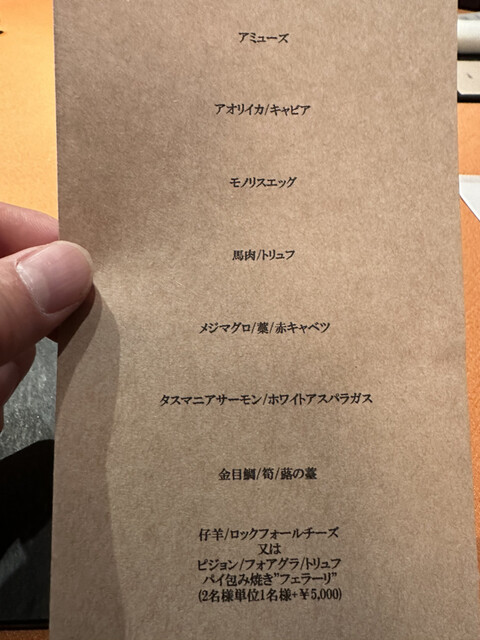 アミューズ
アオリイカ/キャビア
モノリスエッグ
馬肉/トリュフ
メジマグロ/藁/赤キャベツ
タスマニアサーモン/ホワイトアスパラガス
金目鯛/筍/蕗の薹
仔羊/ロックフォールチーズ
又は
ピジョン/フォアグラ/トリュフ
パイ包み焼き"フェラーリ"
(2名様単位1名様+￥5,000)